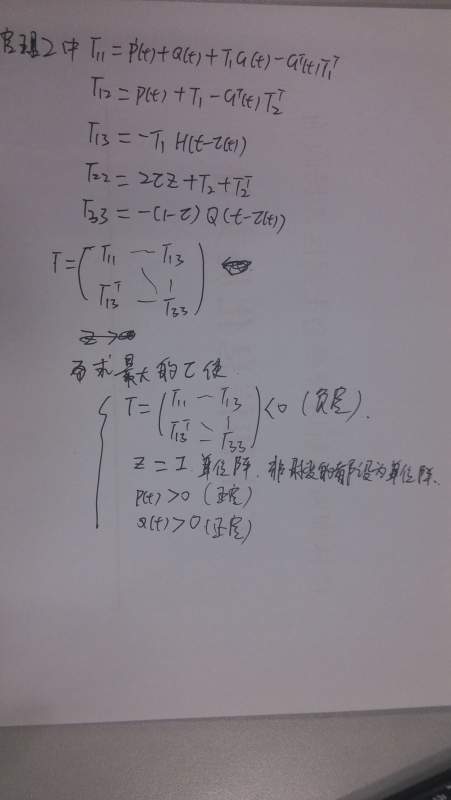 定理2中 T₁₁ = Ṗ(t)+Q(t)+T₁G(t)-Gᵀ(t)T₁ᵀ
T₁₂ = P(t)+T₁-Gᵀ(t)T₂ᵀ
T₁₃ = -T₁ H(t-τ(t))
T₂₂ = 2τZ+T₂+T₂ᵀ
T₃₃ = -(1-τ)Q(t-τ(t))
T = ( T₁₁ — T₁₃
T₁₃ᵀ — T₃₃ )
求最大的τ使
T = ( T₁₁ — T₁₃
T₁₃ᵀ — T₃₃ ) <0 (负定).
Z = I 单位阵. 非时变的都设为单位阵.
P(t)>0 (正定)
Q(t)>0 (正定)